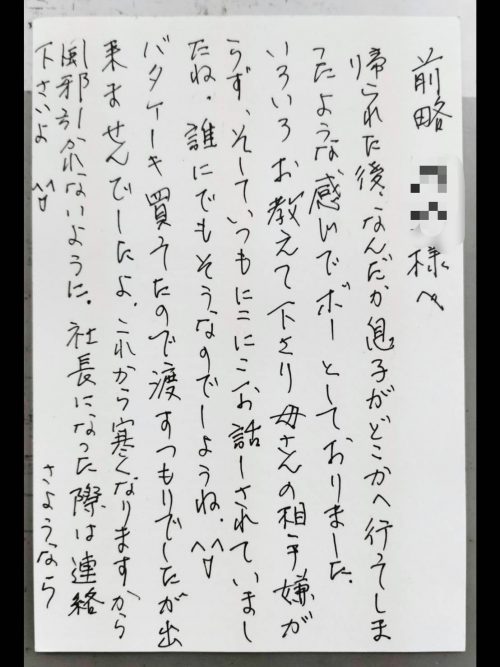 前略 様へ
帰られた後、なんだか息子がどこかへ行うてしま
ったような感じでボーとしておりました。
いろいろお教えて下さり母さんの相手嫌が
らず、そしていつもにこにこお話しされていまし
たね。誰にでもそうなのでしょうね。^^
バタケーキ買うてたので渡すつもりでしたが出
来ませんでしたよ。これから寒くなりますから
風邪引かれないように。社長になった際は連絡
下さいよ ^^
さようなら